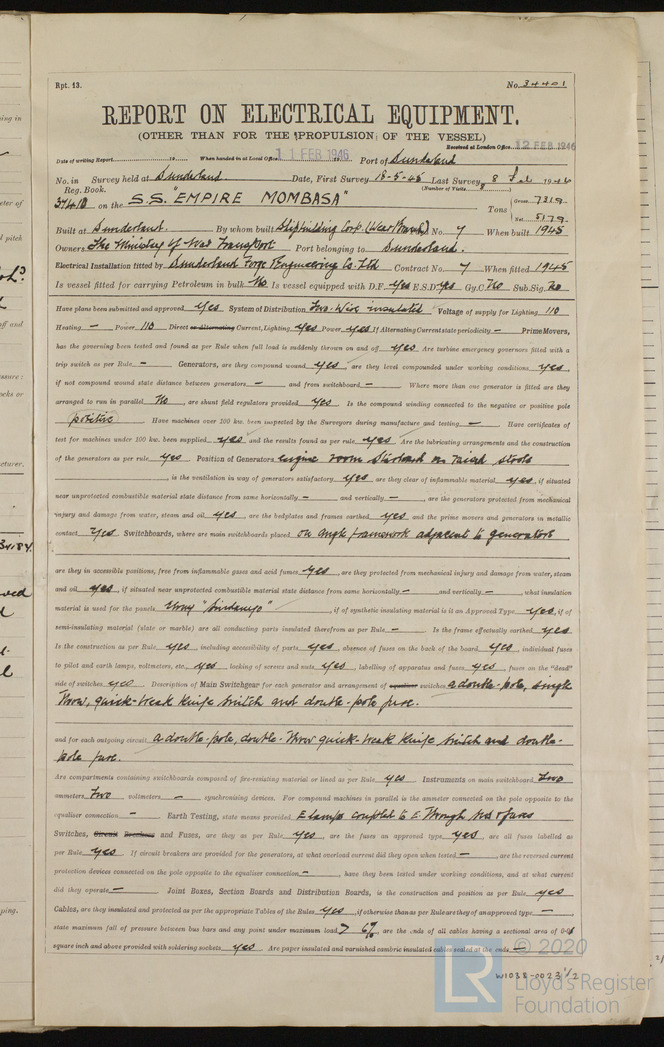 Rpt. 13.
No. 34401
REPORT ON ELECTRICAL EQUIPMENT.
(OTHER THAN FOR THE PROPULSION OF THE VESSEL)
Received at London Office 12 FEB 1946
Date of writing Report 19 When handed in at Local Office 11 FEB 1946 Port of Sunderland
No. in Survey held at Sunderland. Date, First Survey 18-5-45 Last Survey 8 Feb 1946
Reg. Book. (Number of Visits 8)
37410 on the S.S. "EMPIRE MOMBASA" Tons { Gross 7319. Net 5179.
Built at Sunderland. By whom built Shipbuilding Corp. (Wear Branch) No. 7 When built 1945
Owners The Ministry of War Transport Port belonging to Sunderland.
Electrical Installation fitted by Sunderland Forge & Engineering Co. Ltd Contract No. 7 When fitted 1945
Is vessel fitted for carrying Petroleum in bulk No Is vessel equipped with D.F. Yes E.S.D. Yes Gy.C. No Sub.Sig. No
Have plans been submitted and approved Yes System of Distribution Two-Wire insulated Voltage of supply for Lighting 110
Heating - Power 110 Direct or Alternating Current, Lighting Yes Power Yes If Alternating Current state periodicity - Prime Movers,
has the governing been tested and found as per Rule when full load is suddenly thrown on and off Yes Are turbine emergency governors fitted with a
trip switch as per Rule - Generators, are they compound wound Yes, are they level compounded under working conditions Yes,
if not compound wound state distance between generators - and from switchboard - Where more than one generator is fitted are they
arranged to run in parallel No, are shunt field regulators provided Yes Is the compound winding connected to the negative or positive pole
positive Have machines over 100 kw. been inspected by the Surveyors during manufacture and testing - Have certificates of
test for machines under 100 kw. been supplied Yes and the results found as per rule Yes Are the lubricating arrangements and the construction
of the generators as per rule Yes Position of Generators engine room starboard on raised stools
, is the ventilation in way of generators satisfactory Yes are they clear of inflammable material Yes, if situated
near unprotected combustible material state distance from same horizontally - and vertically -, are the generators protected from mechanical
injury and damage from water, steam and oil Yes, are the bedplates and frames earthed Yes and the prime movers and generators in metallic
contact Yes Switchboards, where are main switchboards placed on angle framework adjacent to generators
are they in accessible positions, free from inflammable gases and acid fumes Yes, are they protected from mechanical injury and damage from water, steam
and oil Yes, if situated near unprotected combustible material state distance from same horizontally - and vertically -, what insulation
material is used for the panels Ebony "Sindanyo", if of synthetic insulating material is it an Approved Type Yes, if of
semi-insulating material (slate or marble) are all conducting parts insulated therefrom as per Rule - Is the frame effectually earthed Yes
Is the construction as per Rule Yes, including accessibility of parts Yes, absence of fuses on the back of the board Yes, individual fuses
to pilot and earth lamps, voltmeters, etc. Yes, locking of screws and nuts Yes, labelling of apparatus and fuses Yes, fuses on the "dead"
side of switches Yes Description of Main Switchgear for each generator and arrangement of equaliser switches a double-pole, single
throw, quick-break knife switch and double-pole fuse.
and for each outgoing circuit a double-pole, double-throw quick-break knife switch and double-
pole fuse.
Are compartments containing switchboards composed of fire-resisting material or lined as per Rule Yes Instruments on main switchboard two
ammeters two voltmeters - synchronising devices. For compound machines in parallel is the ammeter connected on the pole opposite to the
equaliser connection - Earth Testing, state means provided E lamps coupled to E through sws & fuses
Switches, Circuit Breakers and Fuses, are they as per Rule Yes, are the fuses an approved type Yes, are all fuses labelled as
per Rule Yes If circuit breakers are provided for the generators, at what overload current did they open when tested -, are the reversed current
protection devices connected on the pole opposite to the equaliser connection -, have they been tested under working conditions, and at what current
did they operate - Joint Boxes, Section Boards and Distribution Boards, is the construction and position as per Rule Yes
Cables, are they insulated and protected as per the appropriate Tables of the Rules Yes, if otherwise than as per Rule are they of an approved type -,
state maximum fall of pressure between bus bars and any point under maximum load > 6%, are the ends of all cables having a sectional area of 0·01
square inch and above provided with soldering sockets Yes Are paper insulated and varnished cambric insulated cables sealed at the ends -
© 2020
W1038-0023 1/2
LR
Lloyd's Register
Foundation